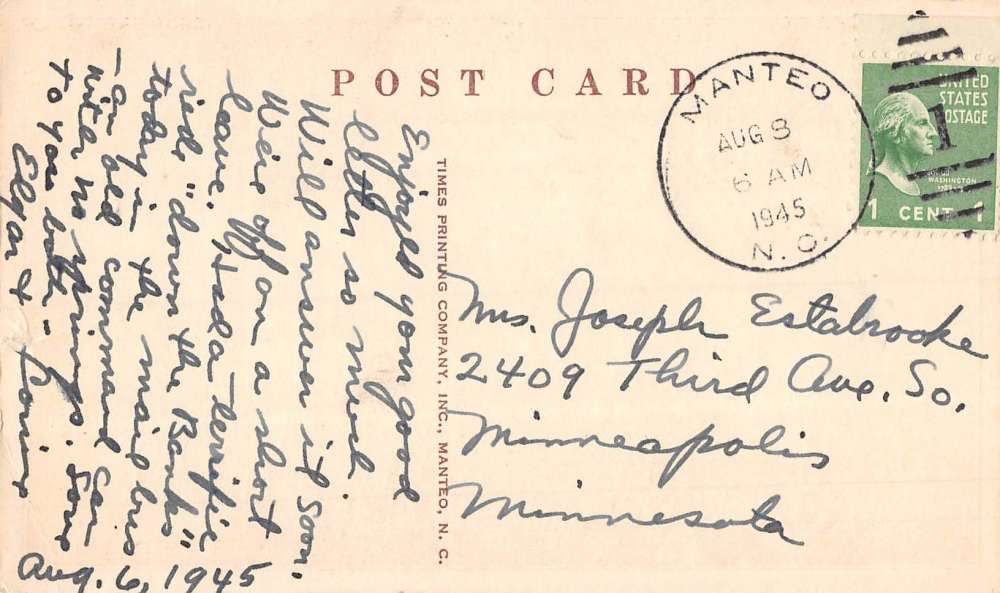 POST CARD
MANTEO
AUG 8
6 AM
1945
N. C.
UNITED
STATES
POSTAGE
1
WASHINGTON
1 CENT 1
Enjoyed your good
letter so much.
Will answer it soon.
We're off on a short
leave. Had a terrific
ride "down the Banks"
today in the mail bus
- an old command car
with no springs. Love
to you both -
Elgar &
Aug. 6, 1945
TIMES PRINTING COMPANY, INC., MANTEO, N. C.
Mrs. Joseph Estabrooke
2409 Third Ave. So.
Minneapolis
Minnesota